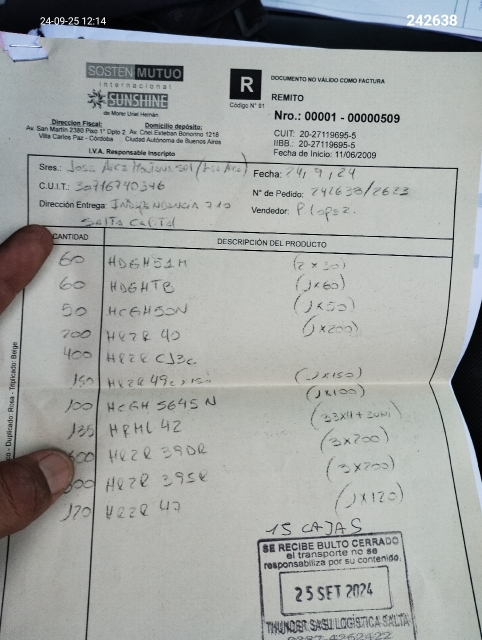 24-09-25 12:14
242638
SOSTÉN MUTUO
internacional
SUNSHINE
de Morel Uriel Hernán
R
Código N° 91
DOCUMENTO NO VÁLIDO COMO FACTURA
REMITO
Nro.: 00001 - 00000509
CUIT: 20-27119695-5
IIBB.: 20-27119695-5
Fecha de Inicio: 11/06/2009
Direccion Fiscal:
Av. San Martin 2380 Piso 1° Dpto 2
Villa Carlos Paz - Córdoba
Domicilio depósito:
Av. Cnel. Esteban Bonorino 1218
Ciudad Autónoma de Buenos Aires
I.V.A. Responsable Inscripto
Sres.:
Fecha: 24, 9, 24
C.U.I.T.: 30716740346
N° de Pedido: 242638/2623
Dirección Entrega: INDEPENDENCIA 710
Vendedor: P Lopez.
Salta Capital
CANTIDAD DESCRIPCIÓN DEL PRODUCTO
60 HDGH51M (2x30)
60 HDGHTB (1x60)
50 HCGH50N (1x50)
200 HRZR 40 (1x200)
400 HRZR C13C
150 HRZR 49 (1x150)
100 HCGH 5645N (1x100)
135 HRHL 42 (33x4+3UNI)
600 HRZR 39DR (3x200)
600 HRZR 39SR (3x200)
120 HRZR 47 (1x120)
15 CAJAS
SE RECIBE BULTO CERRADO
el transporte no se
responsabiliza por su contenido.
25 SET 2024
THUNDER SASU LOGÍSTICA SALTA
- Duplicado: Rosa - Triplicado: Beige